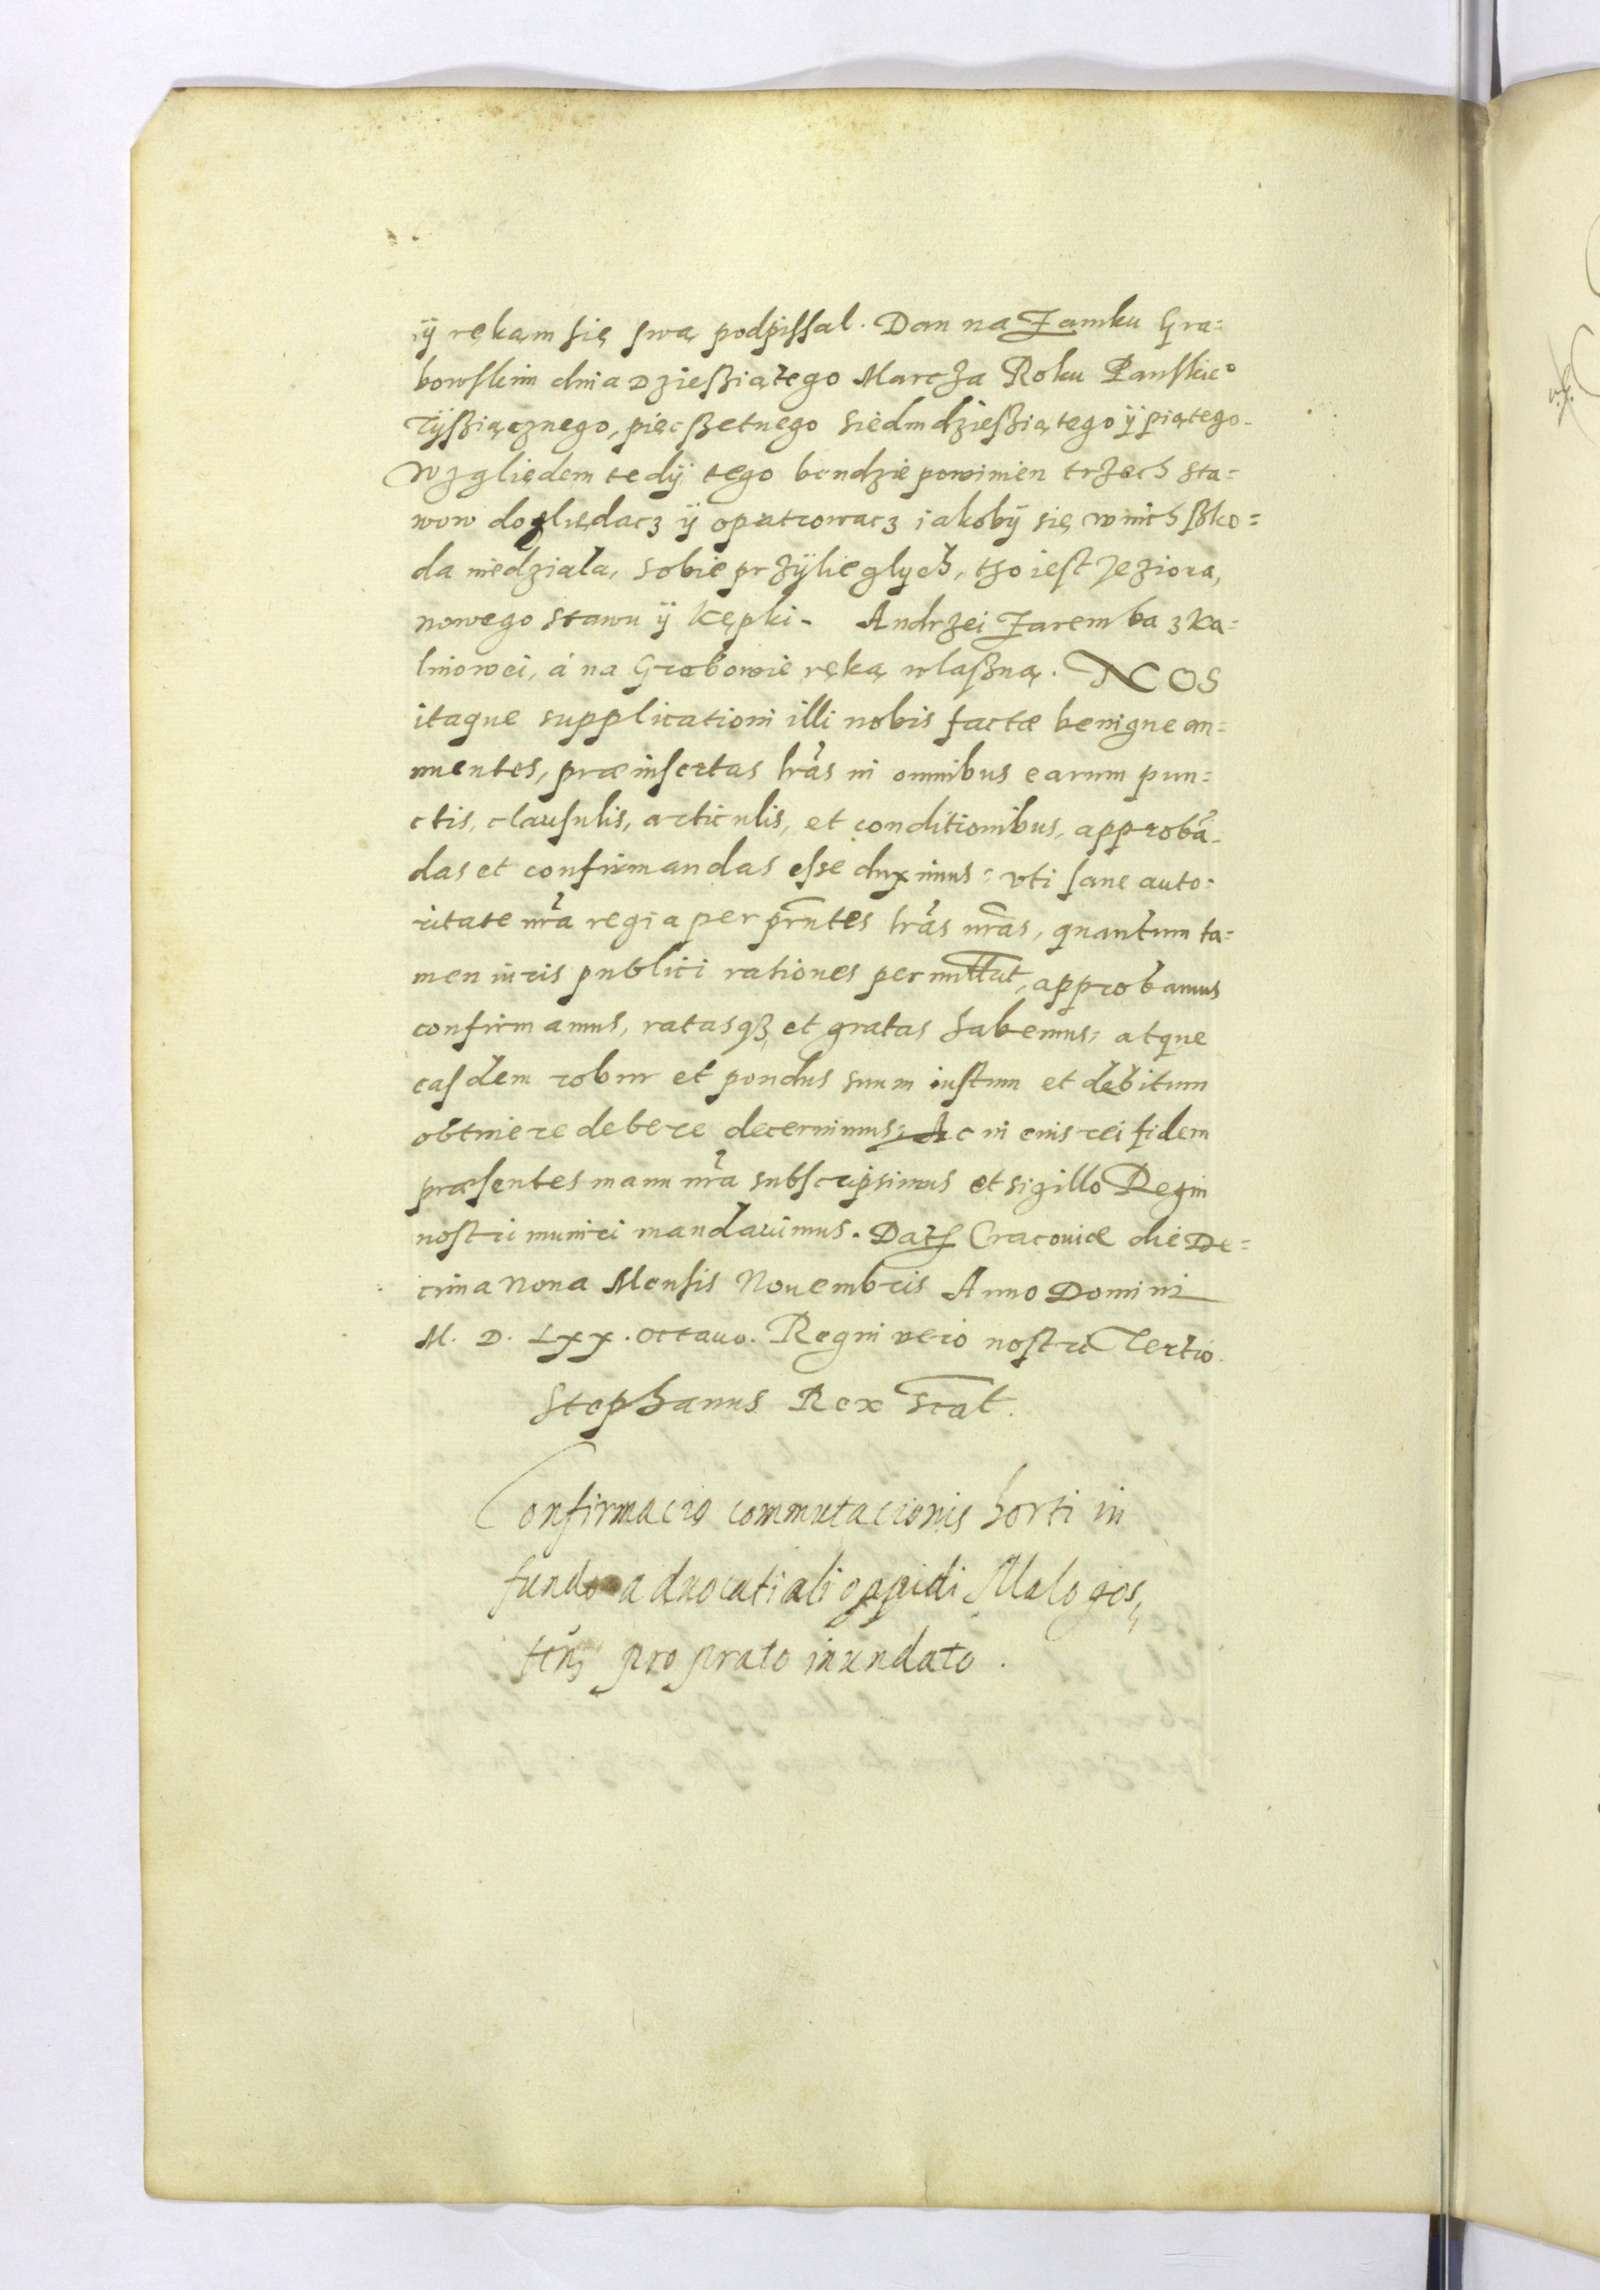 ÿ rękąm się swą podpissal. Dan na Zamku Gra=
bowskim dnia Dzießiątego Marcza Roku Panskie°
Tÿßiącznego, pięcßetnego siedmdzießiątego ÿ piątego.
Wzglięden tedÿ tego bendzie powinien trzech sta=
wow doglıędacz ÿ opatrowacz iakobÿ się w nich ßko=
da niedziala, sobie przÿlieglych, tho iest Jeziora,
nowego stawu ÿ Kępki. Andrzei Zaremba z Ka=
linowei, á na Grabowie ręką wlaßną. NOS
itaque supplicationi illi nobis factæ benigne an=
nuentes, præinsertas lr̃as in omnibus earum pun=
ctis, clausulis, articulis, et conditionibus, approbã=
das et confirmandas esse duximus: vti sane auto=
ritate nr̃a regia per prñtes lr̃as nr̃as, quantum ta=
men iuris publici rationes permittut, approbamus
confirmamus, ratasqꝫ et gratas habemus, atque
easdem robur et pondus suum iustum et debitum
obtinere debere decernimus; Ac in cuius rei fidem
præsentes manu nr̃a subscripsimus et sigillo Regni
nostri muniri mandauimus. Datꝭ Cracouiæ die De=
cima Nona Mensis Nouembris Anno Domini
M. D. LXX. octauo. Regni vero nostri Tertio.
Stephanus Rex
Confirmacio commutacionis horti in
fundo aduocatiali oppidi Malogos,
ten̄ pro prato inundato.